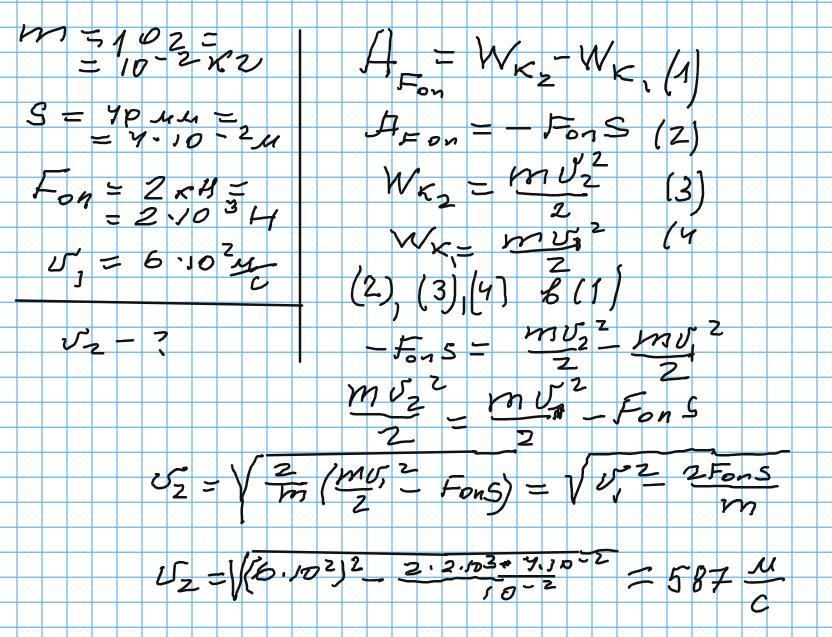 m = 10 г =
= 10⁻² кг
S = 40 мм =
= 4·10⁻² м
Fоп = 2 кН =
= 2·10³ Н
υ₁ = 6·10² м/с
υ₂ – ?
A_Fоп = Wк₂ – Wк₁ (1)
A_Fоп = – Fоп S (2)
Wк₂ = mυ₂²/2 (3)
Wк₁ = mυ₁²/2 (4
(2), (3), (4) в (1)
– Fоп S = mυ₂²/2 – mυ₁²/2
mυ₂²/2 = mυ₁²/2 – Fоп S
υ₂ = √(2/m (mυ₁²/2 – Fоп S)) = √(υ₁² – 2Fоп S/m)
υ₂ = √((6·10²)² – 2·2·10³·4·10⁻²/10⁻²) = 587 м/с